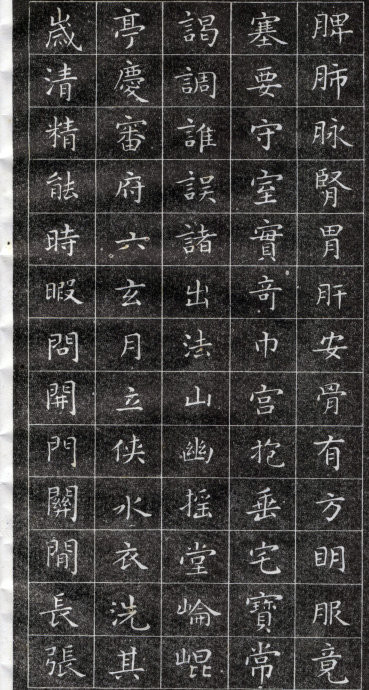 脾肺脉腎胃肝安骨有方眀服竟
塞要守室實竒巾宫抱垂宅寶常
謁調誰誤諸出法山幽摇堂崘崐
亭慶審府六玄月立俠水衣洗其
嵗清精能時暇問開門關閒長張